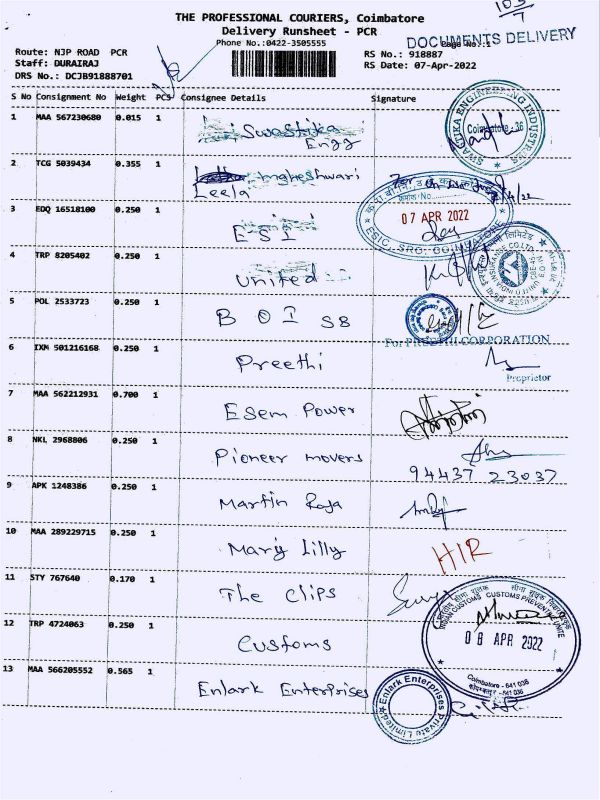 THE PROFESSIONAL COURIERS, Coimbatore
Delivery Runsheet - PCR
Phone No.:0422-3505555
DOCUMENTS DELIVERY
Page No.:1
Route: NJP ROAD PCR
Staff: DURAIRAJ
DRS No.: DCJB91888701
RS No.: 918887
RS Date: 07-Apr-2022
S No Consignment No Weight PCS Consignee Details Signature
1 MAA 567230680 0.015 1 Swastika Engg
SWASTIKA ENGINEERING INDUSTRIES
Coimbatore-36
2 TCG 5039434 0.355 1 Leela
3 EDQ 16518100 0.250 1 ESI
07 APR 2022
ESIC, SRO, COIMBATORE
4 TRP 8205402 0.250 1 United
5 POL 2533723 0.250 1 BOI SS
For PREETHI CORPORATION
6 IXM 501216168 0.250 1 Preethi
Proprietor
7 MAA 562212931 0.700 1 Esem Power
8 NKL 2968806 0.250 1 Pioneer movers
94437 23037
9 APK 1248386 0.250 1 Martin Raja
10 MAA 289229715 0.250 1 Mary Lilly
11 STY 767640 0.170 1 The Clips
INDIAN CUSTOMS CUSTOMS PREVENTIVE UNIT
08 APR 2022
Coimbatore - 641 036
12 TRP 4724063 0.250 1 Customs
13 MAA 566205552 0.565 1 Enlark Enterprises
Enlark Enterprises Private Limited